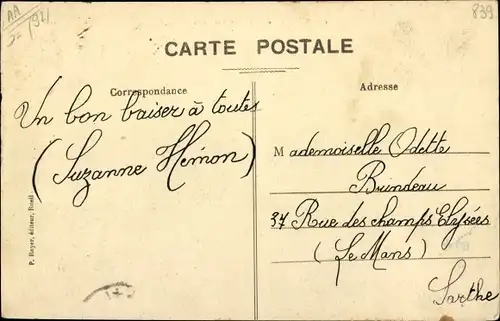 AA
839
CARTE POSTALE
Correspondance
Adresse
Un bon baiser à toutes
(Suzanne Hémon)
Mademoiselle Odette
Brindeau
37 Rue des champs Elysées
(Le Mans)
Sarthe
P. Royer, éditeur,